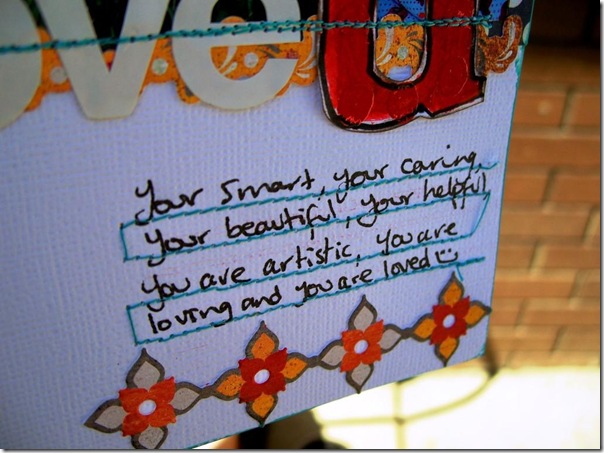 ove u
Your smart, your caring,
your beautiful, your helpful
you are artistic, you are
loving and you are loved